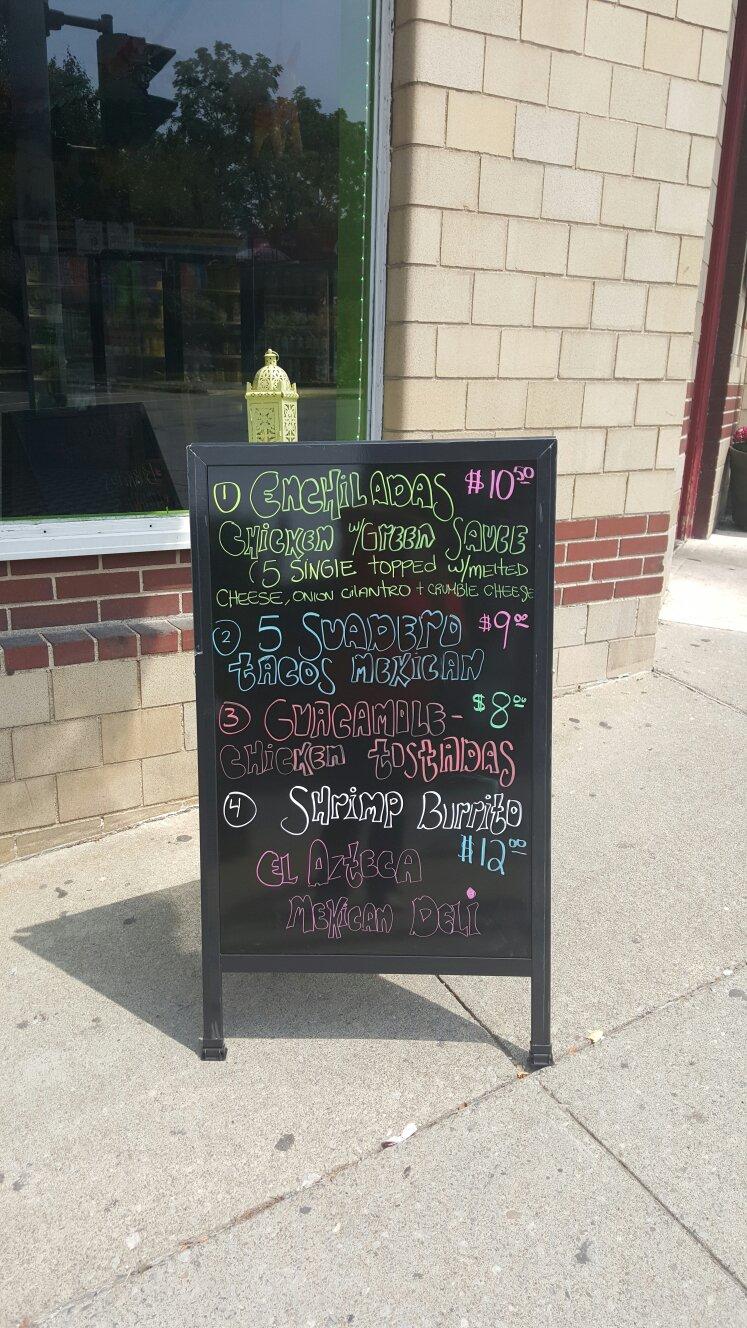 1 Enchiladas $10.50
Chicken w/Green Sauce
(5 Single topped w/melted
cheese, onion cilantro + crumble cheese
2 5 Suadero $9.00
tacos Mexican
3 Guacamole- $8.00
Chicken tostadas
4 Shrimp Burrito
$12.00
El Azteca
Mexican Deli